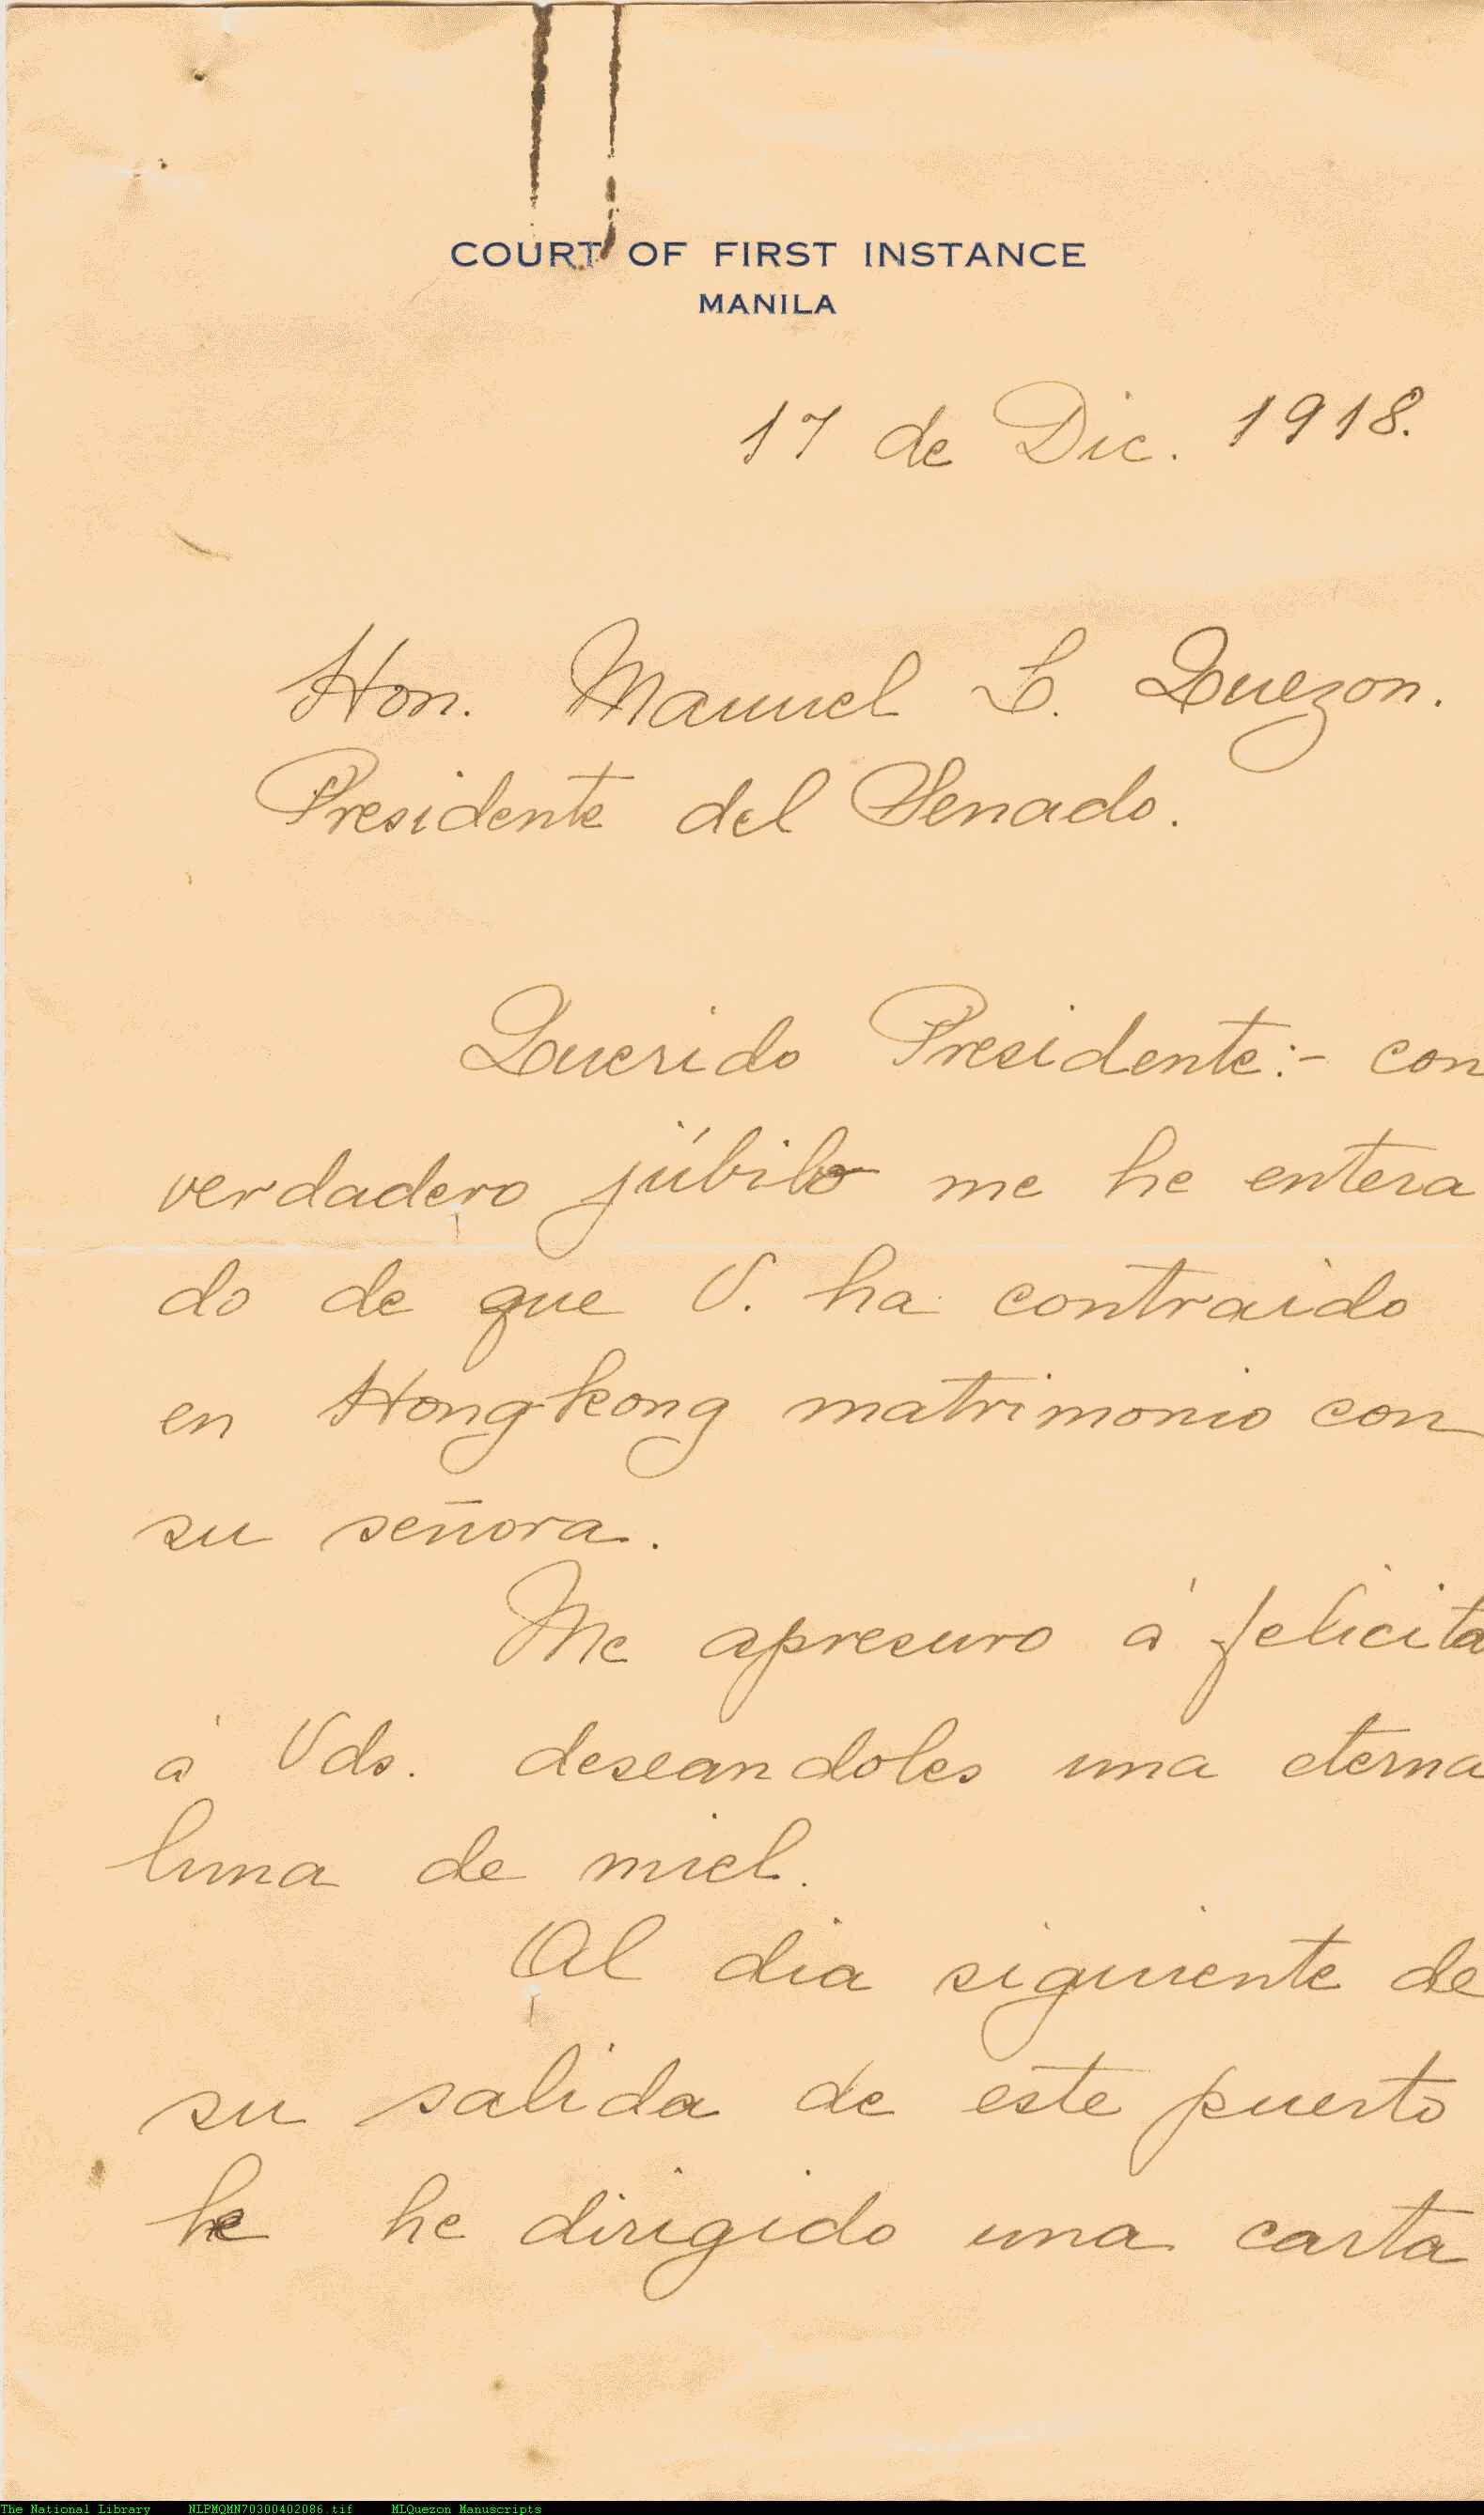 COURT OF FIRST INSTANCE
MANILA
17 de Dic. 1918.
Hon. Manuel L. Quezon.
Presidente del Senado.
Querido Presidente:- con
verdadero júbilo me he entera
do de que V. ha contraido
en Hongkong matrimonio con
su señora.
Me apresuro á felicita
á Vds. deseandoles una eterna
luna de miel.
Al dia siguiente de
su salida de este puerto
le he dirigido una carta
The National Library NLPMQMN70300402086.tif MLQuezon Manuscripts